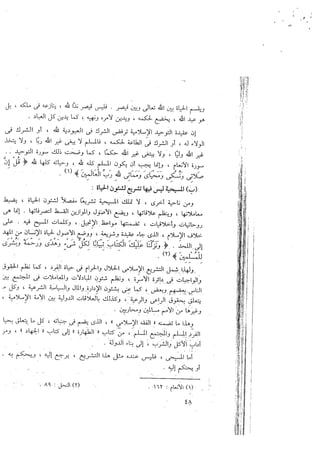 ويقسم الحياة بين الله تعالى وبين قيصر . فليس قيصر ندًا لله ، ينازعه فى ملكه ، بل
هو عبد الله ، يخضع لحكمه ، ويدين لأمره ونهيه ، كما يدين كل العباد .
إن عقيدة التوحيد الإسلامية ترفض الشرك فى العبودية لله ، أو الشرك فى
الولاء له ، أو الشرك فى الطاعة لحكمه ، فالمسلم لا يبغى غير الله ربًا ، ولا يتخذ
غير الله وليًا ، ولا يبتغى غير الله حكمًا ، كما وضحت ذلك سورة التوحيد ..
سورة الأنعام . وإنما يجب أن يكون المسلم كله لله ، وحياته كلها لله ﴿ قُلْ إِنَّ
صَلَاتِى وَنُسُكِى وَمَحْيَاىَ وَمَمَاتِى لِلَّهِ رَبِّ الْعَالَمِينَ ﴾ (١) .
(ب) المسيحية ليس فيها تشريع لشئون الحياة :
ومن ناحية أخرى ، لا تملك المسيحية تشريعًا مفصلاً لشئون الحياة ، يضبط
معاملاتها ، وينظم علاقاتها ، ويضع الأصول والموازين القسط لتصرفاتها . إنما هى
روحانيات وأخلاقيات ، تضمنتها مواعظ الإنجيل ، وكلمات المسيح فيه . على
خلاف الإسلام ، الذى جاء عقيدة وشريعة ، ووضع الأصول لحياة الإنسان من المهد
إلى اللحد . ﴿ وَنَزَّلْنَا عَلَيْكَ الْكِتَابَ تِبْيَانًا لِّكُلِّ شَىْءٍ وَهُدًى وَرَحْمَةً وَبُشْرَى
لِلْمُسْلِمِينَ ﴾ (٢) .
ولهذا شمل التشريع الإسلامى الحلال والحرام فى حياة الفرد ، كما نظم الحقوق
والواجبات فى دائرة الأسرة ، ونظم شئون المبادلات والمعاملات فى المجتمع بين
الناس بعضهم وبعض ، كما عنى بشئون الإدارة والمال والسياسة الشرعية ، وكل ما
يتعلق بحقوق الراعى والرعية ، وكذلك بالعلاقات الدولية بين الأمة الإسلامية ،
وغيرها من الأمم مسالمين ومحاربين .
وهذا ما تضمنه « الفقه الإسلامى » ، الذى يضم فى جنباته ، كل ما يتعلق بحياة
الفرد المسلم والمجتمع المسلم ، من كتاب « الطهارة » إلى كتاب « الجهاد » ، ومن
آداب الأكل والشرب ، إلى بناء الدولة .
أما المسيحى ، فليس عنده مثل هذا التشريع ، يرجع إليه ، ويحكم به ،
أو يحتكم إليه .
(١) الأنعام : ١٦٢ . (٢) النحل : ٨٩ .
٤٨